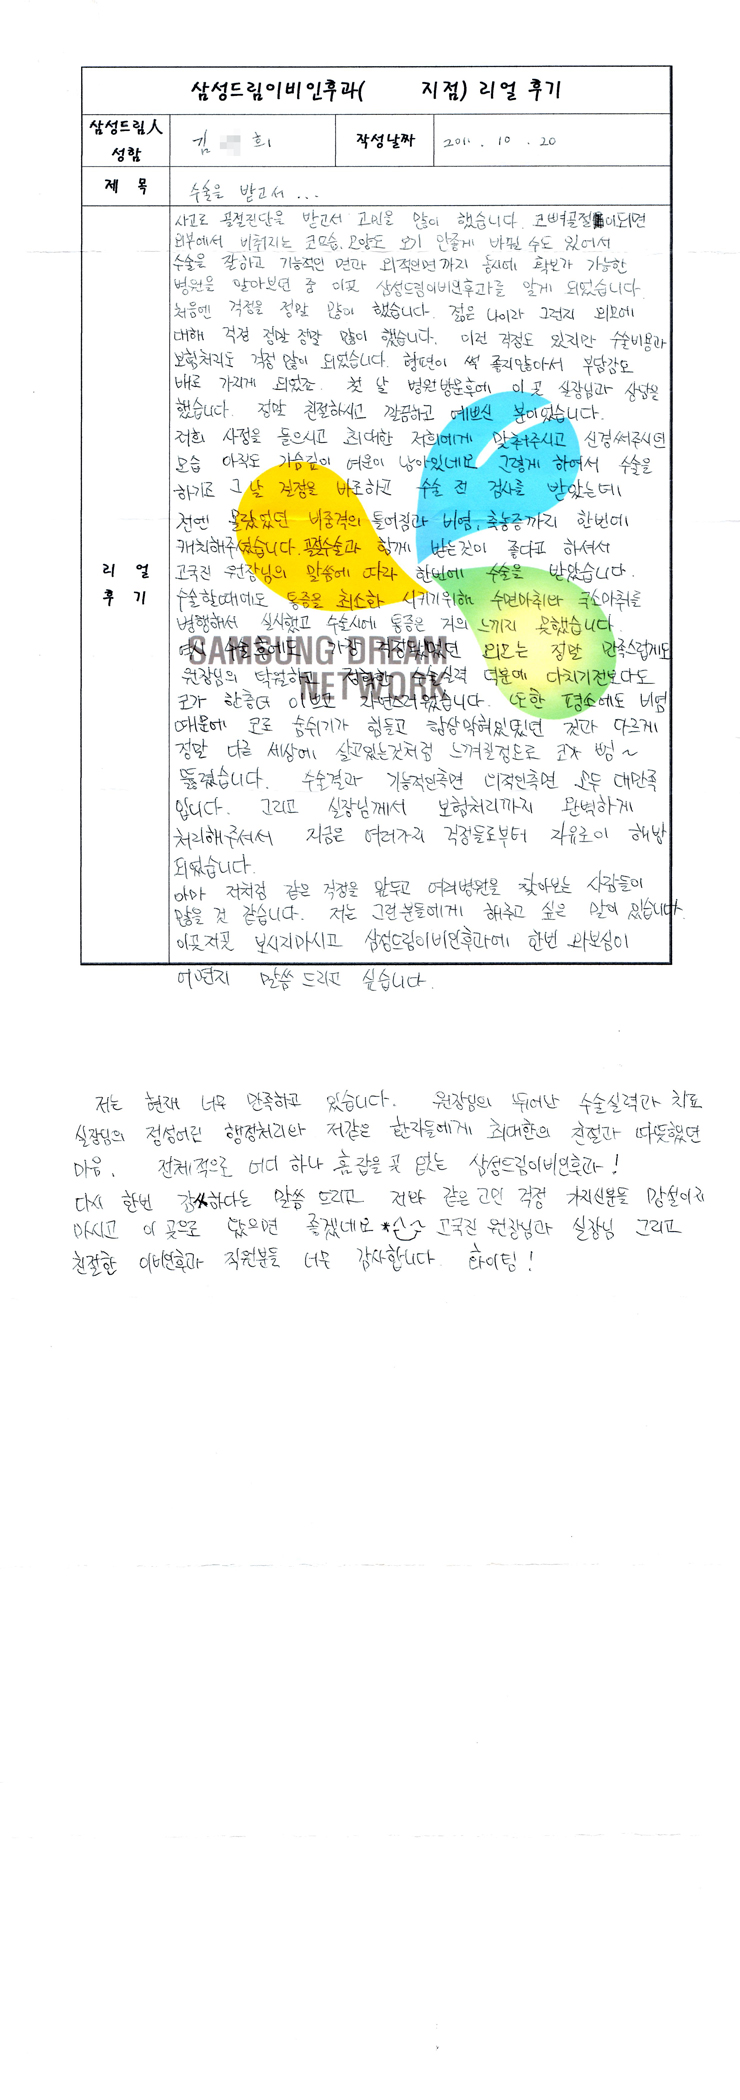 삼성드림이비인후과( 지점) 리얼 후기
삼성드림人 성함
김 희
작성날짜
2011 . 10 . 20
제 목
수술을 받고서 ...
리 얼 후 기
사고로 골절진단을 받고서 고민을 많이 했습니다. 코뼈골절이되면
외부에서 비춰지는 코모습, 모양도 보기 안좋게 바뀔 수도 있어서
수술을 잘하고 기능적인 면과 외적인면까지 동시에 확보가 가능한
병원을 알아보던 중 이곳 삼성드림이비인후과를 알게 되었습니다.
처음엔 걱정을 정말 많이 했습니다. 젊은 나이라 그런지 외모에
대해 걱정 정말 정말 많이 했습니다. 이런 걱정도 있지만 수술비용과
보험처리도 걱정 많이 되었습니다. 형편이 썩 좋지않아서 부담감도
배로 가지게 되었죠. 첫 날 병원방문후에 이곳 실장님과 상담을
했습니다. 정말 친절하시고 깔끔하고 예쁘신 분이었습니다.
저희 사정을 들으시고 최대한 저희에게 맞춰주시고 신경써주시던
모습 아직도 가슴깊이 여운이 남아있네요 그렇게 하여서 수술을
하기로 그날 결정을 바로하고 수술 전 검사를 받았는데
전엔 몰랐었던 비중격의 틀어짐과 비염, 축농증까지 한번에
캐치해주셨습니다. 골절수술과 함께 받는것이 좋다고 하셔서
고국진 원장님의 말씀에 따라 한번에 수술을 받았습니다.
수술할때에도 통증을 최소한 시키기위해 수면마취와 국소마취를
병행해서 실시했고 수술시에 통증은 거의 느끼지 못했습니다
역시 수술후에도 가장 걱정됐었던 외모는 정말 만족스럽게도
원장님의 탁월하고 정확한 수술실력 덕분에 다치기전보다도
코가 한층더 이쁘고 자연스러웠습니다. 또한 평소에도 비염
때문에 코로 숨쉬기가 힘들고 항상막혀있었던 것과 다르게
정말 다른 세상에 살고있는것처럼 느껴질정도로 코가 뻥~
뚫렸습니다. 수술결과 기능적인측면 미적인측면 모두 대만족
입니다. 그리고 실장님께서 보험처리까지 완벽하게
처리해주셔서 지금은 여러가지 걱정들로부터 자유로이 해방
되었습니다.
아마 저처럼 같은 걱정을 앞두고 여러병원을 찾아보는 사람들이
많을 것 같습니다. 저는 그런분들에게 해주고 싶은 말이 있습니다.
이곳저곳 보시지마시고 삼성드림이비인후과에 한번 와보심이
어떤지 말씀 드리고 싶습니다.
SAMSUNG DREAM
NETWORK
저는 현재 너무 만족하고 있습니다. 원장님의 뛰어난 수술실력과 치료
실장님의 정성어린 행정처리와 저같은 환자들에게 최대한의 친절과 따뜻했던
마음, 전체적으로 어디 하나 흠잡을 곳 없는 삼성드림이비인후과!
다시 한번 감사하다는 말씀 드리고 저와 같은 고민 걱정 가지신분들 망설이지
마시고 이 곳으로 왔으면 좋겠네요 *^^ 고국진 원장님과 실장님 그리고
친절한 이비인후과 직원분들 너무 감사합니다. 화이팅!